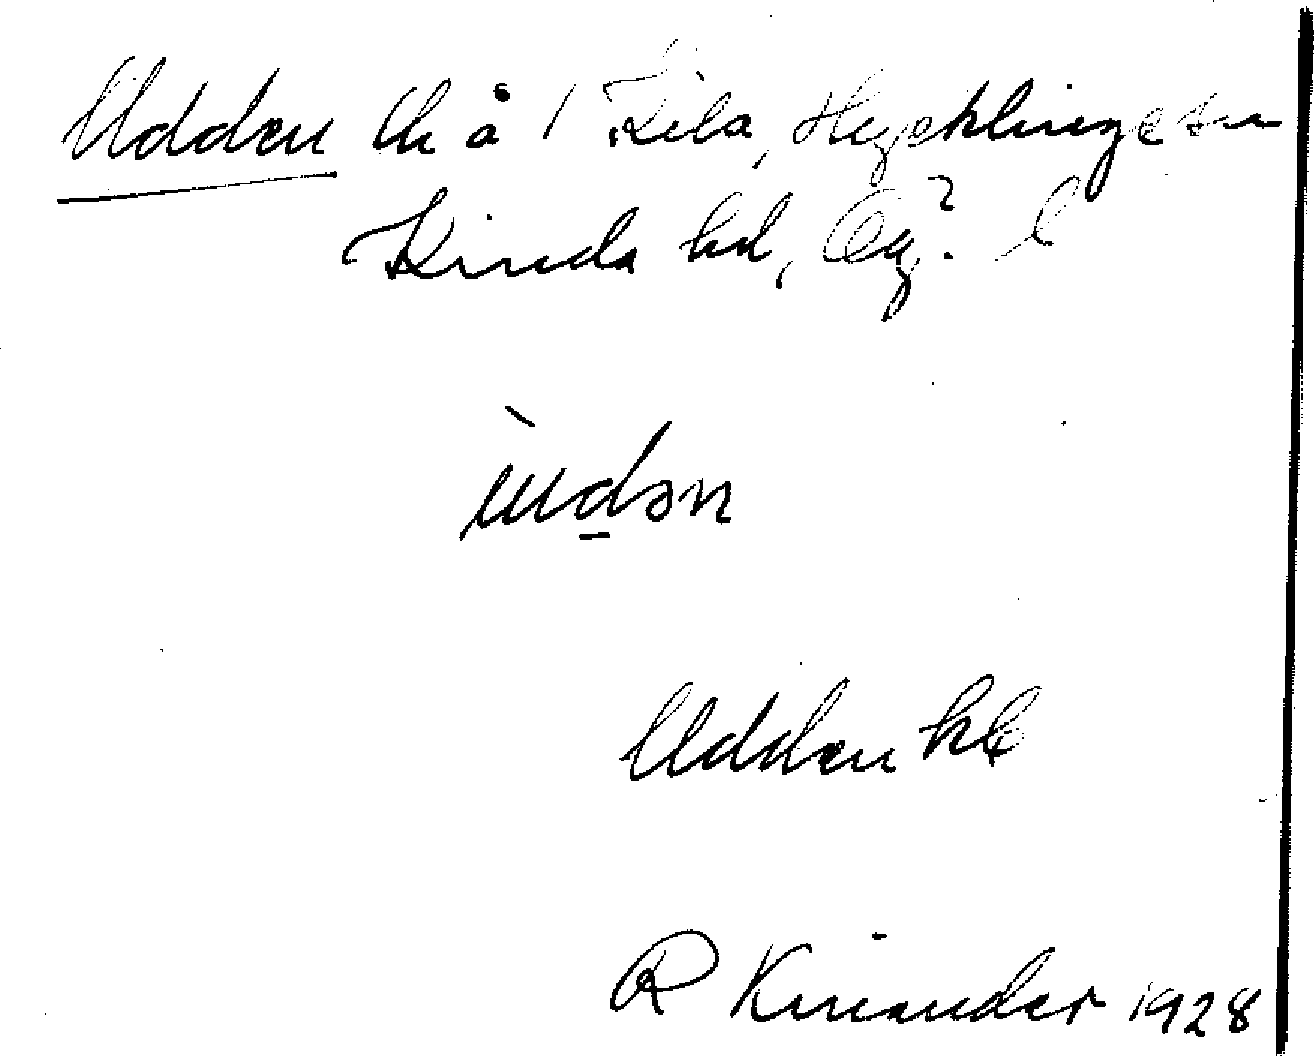 Udden lh å 1 Kila, Hycklinge sn
Kinda hd, Ög.
ùdən
Udden hl
R Kinander 1928